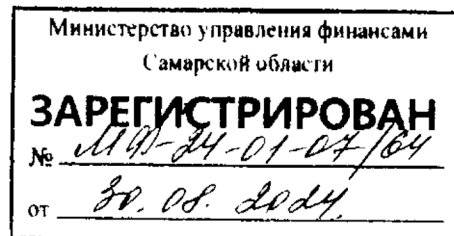 Министерство управления финансами
Самарской области
ЗАРЕГИСТРИРОВАН
№ МФ-24-01-07/64
от 30.08.2024.